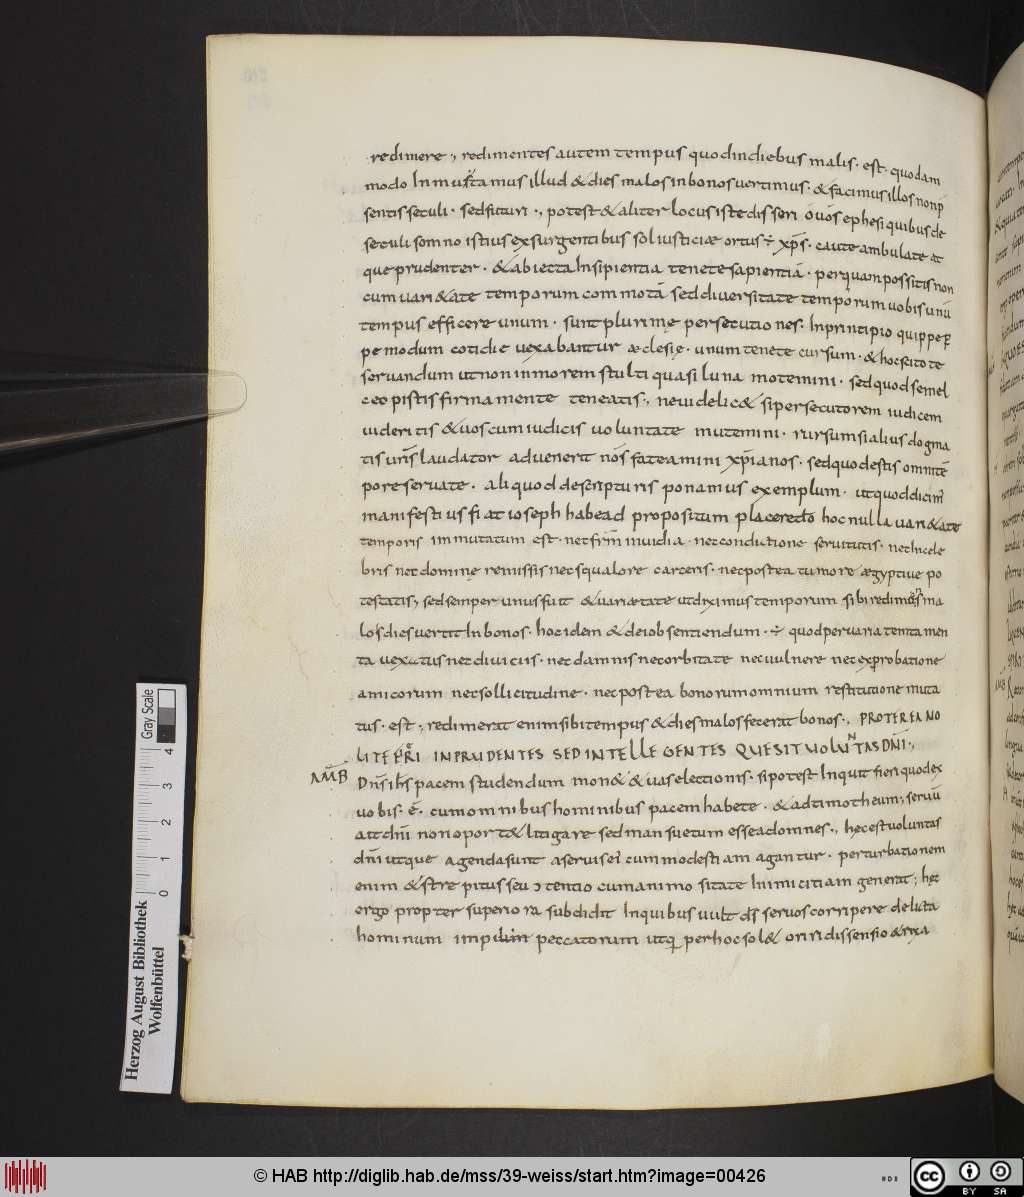 redimere ., redimentes autem tempus quod indiebus malis · est · quodam
modo Inmustamus illud & dies malos in bonos uertimus · & facimus illos non p̄
sentis seculi · sed futuri ., potest & aliter locus iste disseri ō uōs ephesi qui bus de
seculi somno istius exsurgentibus sol iusticiæ ortus ÷ xp̄s · caute ambulate at
que prudenter · & abiecta Insipientia tenete sapientiā · per quam possitis non
cum uari&ate temporum commotā sed diuersitate temporum uobis unū
tempus efficere unum · sunt plurime persecutiones · Inprincipio quippe
pe modum cotidie uexabantur æclesię · unum tenete cursum · & hoc scitote
seruandum ut non in morem stulti quasi luna motemini · sed quod semel
pistis firmamente teneatis ., ne uidelic& si persecutorem iudicem
uideritis & uos cum iudicis uoluntate mutemini · rursum si alius dogma
tis ur̄is laudator aduenerit nōs fateamini xp̄ianos · sed quod estis omni tē
pore seruate · aliquod descripturis ponamus exemplum · ut quod dicim̄
manifestius fiat ioseph habe ad propositum hoc nulla uari&ate
temporis immutatum est · nec fr̄m inuidia · nec condictione seruitutis · nec Incele
bris nec dominę remissis nec squalore carceris · nec postea tumore ægyptiue po
testatis ., sed semper unus fuit & uariætate ut diximus temporum sibi redim& ma
los dies uertit In bonos · hoc idem & de iob sentiendum · ÷ quod per uaria temtamen
ta uexatus nec diuiciis · nec damnis nec orbitate nec uulnere nec exprobatione
amicorum nec sollicitudine · nec postea bonorum omnium restitutione muta
tus · est ., redimerat enim sibi tempus & dies malos fecerat bonos ., PROTEREA NO
LITE INPRUDENTES SED INTELLEGENTES QUE SIT UOLUNTAS DN̄I .,
AMB Dn̄s ih̄s pacem studendum mon& & uas electionis · si potest Inquit fieri quod ex
uobis · ē · cum omnibus hominibus pacem habete · & ad timotheum ; seruū
ait dn̄i non oport& litigare sed mansuetum esse ad omnes ., hęc est uoluntas
dn̄i ut que agenda sunt a seruis ei cum modestiam agantur · perturbationem
enim & strepitus seu ɔtentio cum animositate Inimicitiam generat ; hęc
ergo propter superiora subdidit In quibus uult ds̄ seruos corripere delicta
hominum peccatorum ut per hoc sol& oriri dissensio & rixa
Herzog August Bibliothek
Wolfenbüttel
0 1 2 3 4
Gray Scale
© HAB http://diglib.hab.de/mss/39-weiss/start.htm?image=00426
cc BY SA